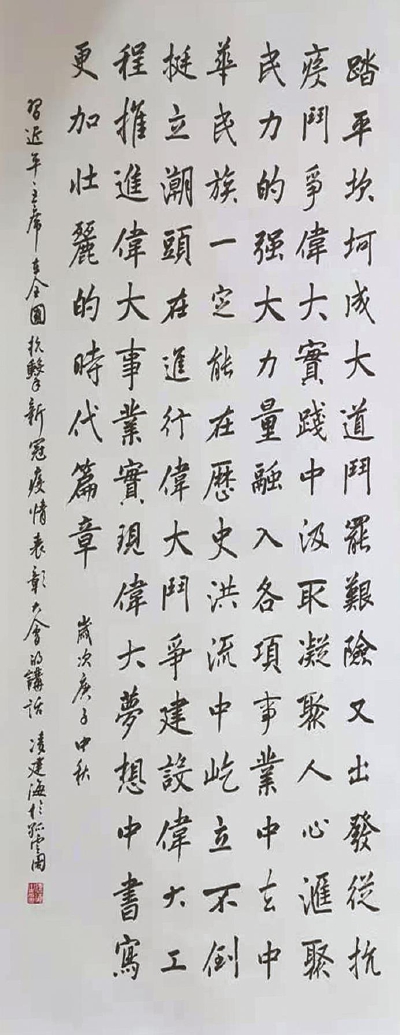 踏平坎坷成大道鬥罷艱險又出發從抗
疫鬥爭偉大實踐中汲取凝聚人心滙聚
民力的强大力量融入各項事業中去中
華民族一定能在歷史洪流中屹立不倒
挺立潮頭在進行偉大鬥爭建設偉大工
程推進偉大事業實現偉大夢想中書寫
更加壯麗的時代篇章
歲次庚子中秋
習近平主席在全國抗擊新冠疫情表彰大會的講話 凌建海於